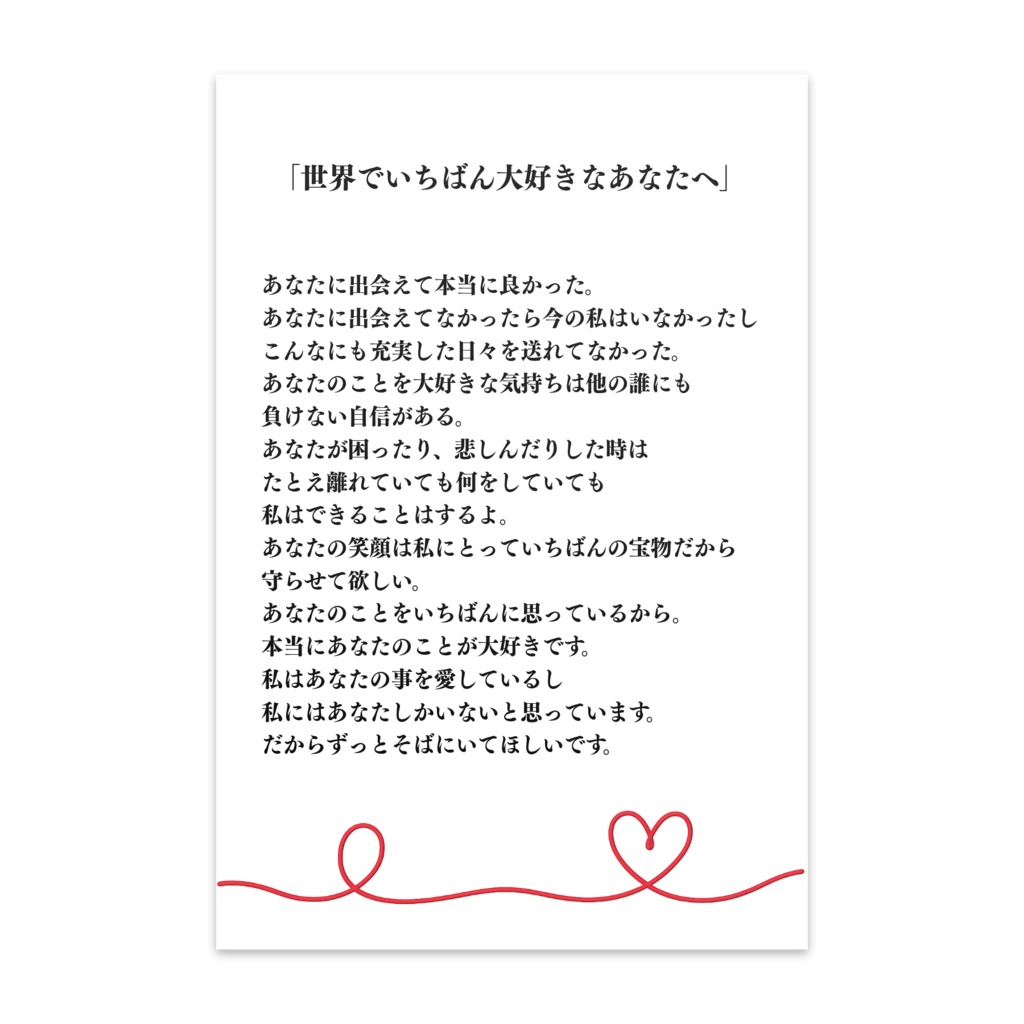 「世界でいちばん大好きなあなたへ」
あなたに出会えて本当に良かった。
あなたに出会えてなかったら今の私はいなかったし
こんなにも充実した日々を送れてなかった。
あなたのことを大好きな気持ちは他の誰にも
負けない自信がある。
あなたが困ったり、悲しんだりした時は
たとえ離れていても何をしていても
私はできることはするよ。
あなたの笑顔は私にとっていちばんの宝物だから
守らせて欲しい。
あなたのことをいちばんに思っているから。
本当にあなたのことが大好きです。
私はあなたの事を愛しているし
私にはあなたしかいないと思っています。
だからずっとそばにいてほしいです。